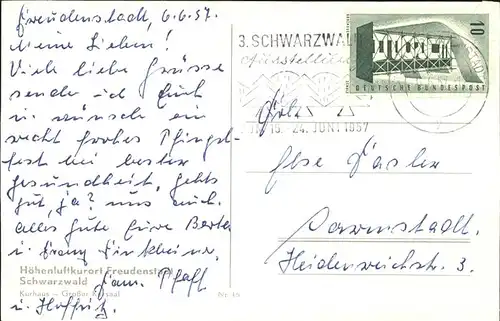 Freudenstadt, 6.6.57.
Meine Lieben!
Viele liebe Grüsse
sende ich Euch
u. wünsche ein
recht frohes Pfingst-
fest bei bester
Gesundheit, gehts
gut, ja? uns auch.
alles gute Eure Berta
u. Franz
Fam. Pfaff
u.
Höhenluftkurort Freudenstadt
Schwarzwald
Kurhaus - Großer Kursaal
3. SCHWARZWALD
Ausstellung
24. JUNI 1957
10
DEUTSCHE BUNDESPOST
Else
Darmstadt.
Heidenreichstr. 3.